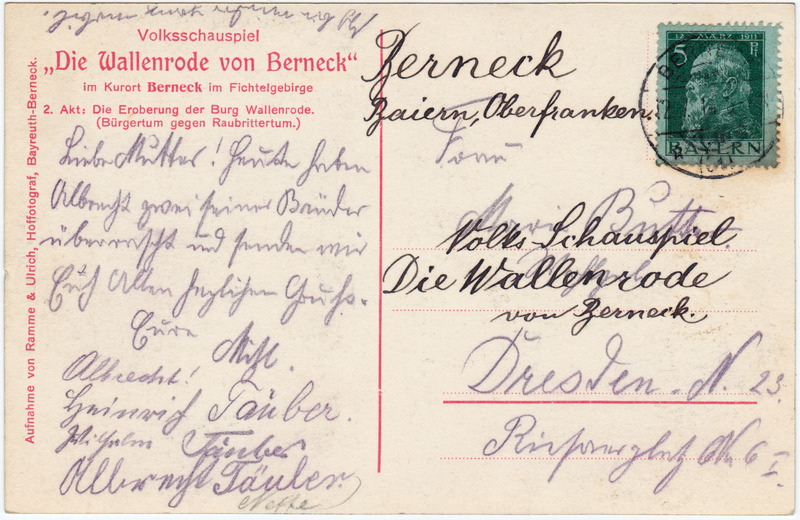 Volksschauspiel
„Die Wallenrode von Berneck“
im Kurort Berneck im Fichtelgebirge
2. Akt: Die Eroberung der Burg Wallenrode.
(Bürgertum gegen Raubrittertum.)
Liebe Mutter! Heute haben
Albrecht zwei seiner Brüder
überrascht und senden wir
Euch Allen herzlichen Gruß.
Eure
Albrecht!
Heinrich Täuber.
Wilhelm Täuber
Albrecht Täuber.
Neffe
Aufnahme von Ramme & Ulrich, Hoffotograf, Bayreuth-Berneck.
Berneck
Baiern, Oberfranken.
Frau
Volks Schauspiel
Die Wallenrode
von Berneck.
Dresden. N. 23.
No 6 I.
12. MÄRZ 1911
5 Pf
BAYERN